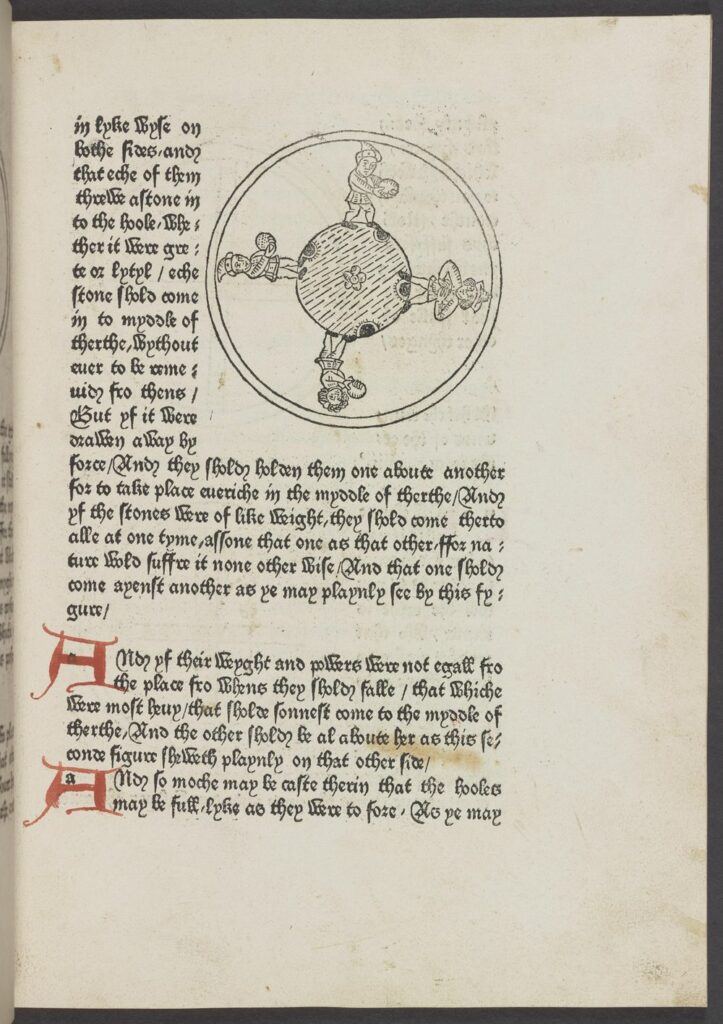 in lyke wyse on
bothe sides, and
that eche of them
threwe a stone in
to the hoole, whe:
ther it were gre:
te or lytyl / eche
stone shold come
in to myddle of
therthe, wythout
euer to be reme:
uid fro thens /
But yf it were
drawen away by
force / And they shold holden them one aboute another
for to take place eueriche in the myddle of therthe / And
yf the stones were of like weight, they shold come therto
alle at one tyme, assone that one as that other, ffor na:
ture wold suffre it none other wise / And that one shold
come ayenst another as ye may playnly see by this fy:
gure /
And yf their weyght and powers were not egall fro
the place fro whens they shold falle / that whiche
were most heuy / that sholde sonnest come to the myddle of
therthe, And the other shold be al aboute her as this se:
conde figure sheweth playnly on that other side /
And so moche may be caste therin that the hooles
may be full, lyke as they were to fore, As ye may